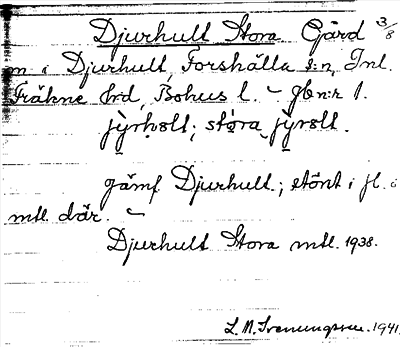 Djurhult Stora Gård 3/8
m i Djurhult, Forshälla s:n, Inl.
Fräkne hd, Bohus l. – gbn:r 1.
jy̤rhɷlt; stɷ̤ra jy̤rɷlt.
jämf Djurhult; i jl. i
mtl. där. –
Djurhult Stora mtl. 1938.
1941